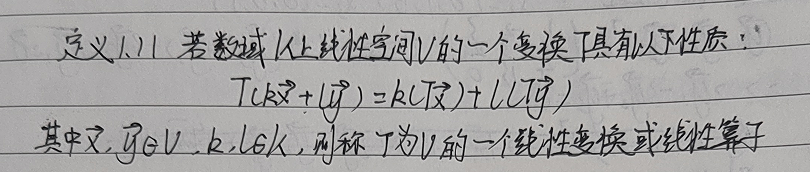 定义1.11 若数域K上线性空间V的一个变换T具有以下性质：
T(kx⃗+ly⃗)=k(Tx⃗)+l(Ty⃗)
其中x⃗,y⃗∈V,k,l∈K,则称T为V的一个线性变换或线性算子